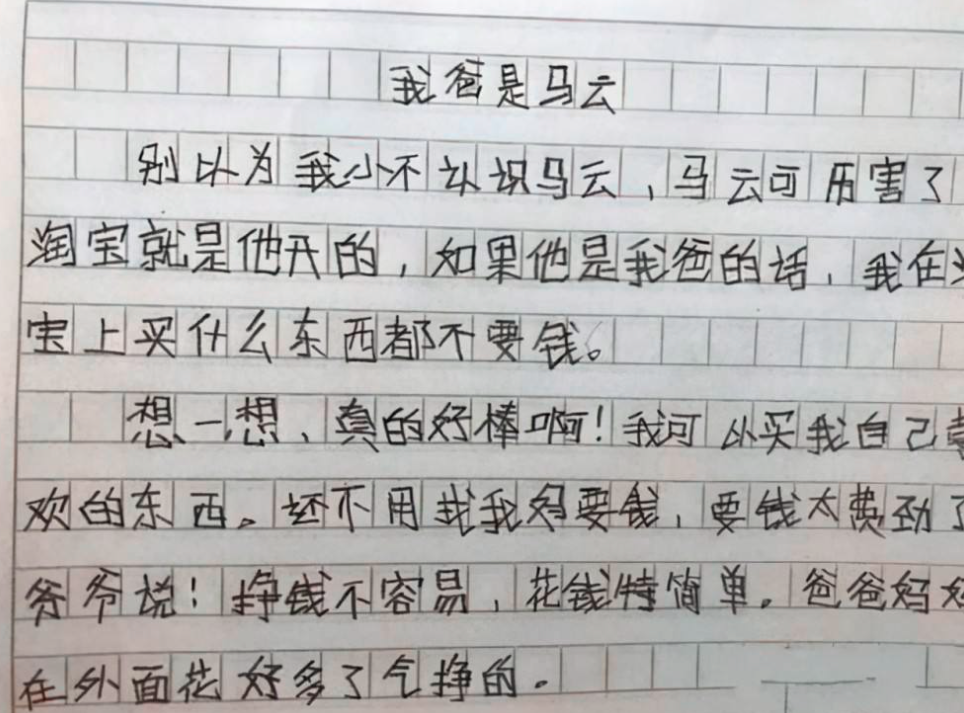 我爸是马云
别以为我小不认识马云,马云可历害了
淘宝就是他开的,如果他是我爸的话,我在
宝上买什么东西都不要钱。
想一想,真的好棒啊!我可以买我自己喜
欢的东西。还不用找我妈要钱,要钱太费劲了
爷爷说!挣钱不容易,花钱特简单。爸爸妈妈
在外面花好多了气挣的。